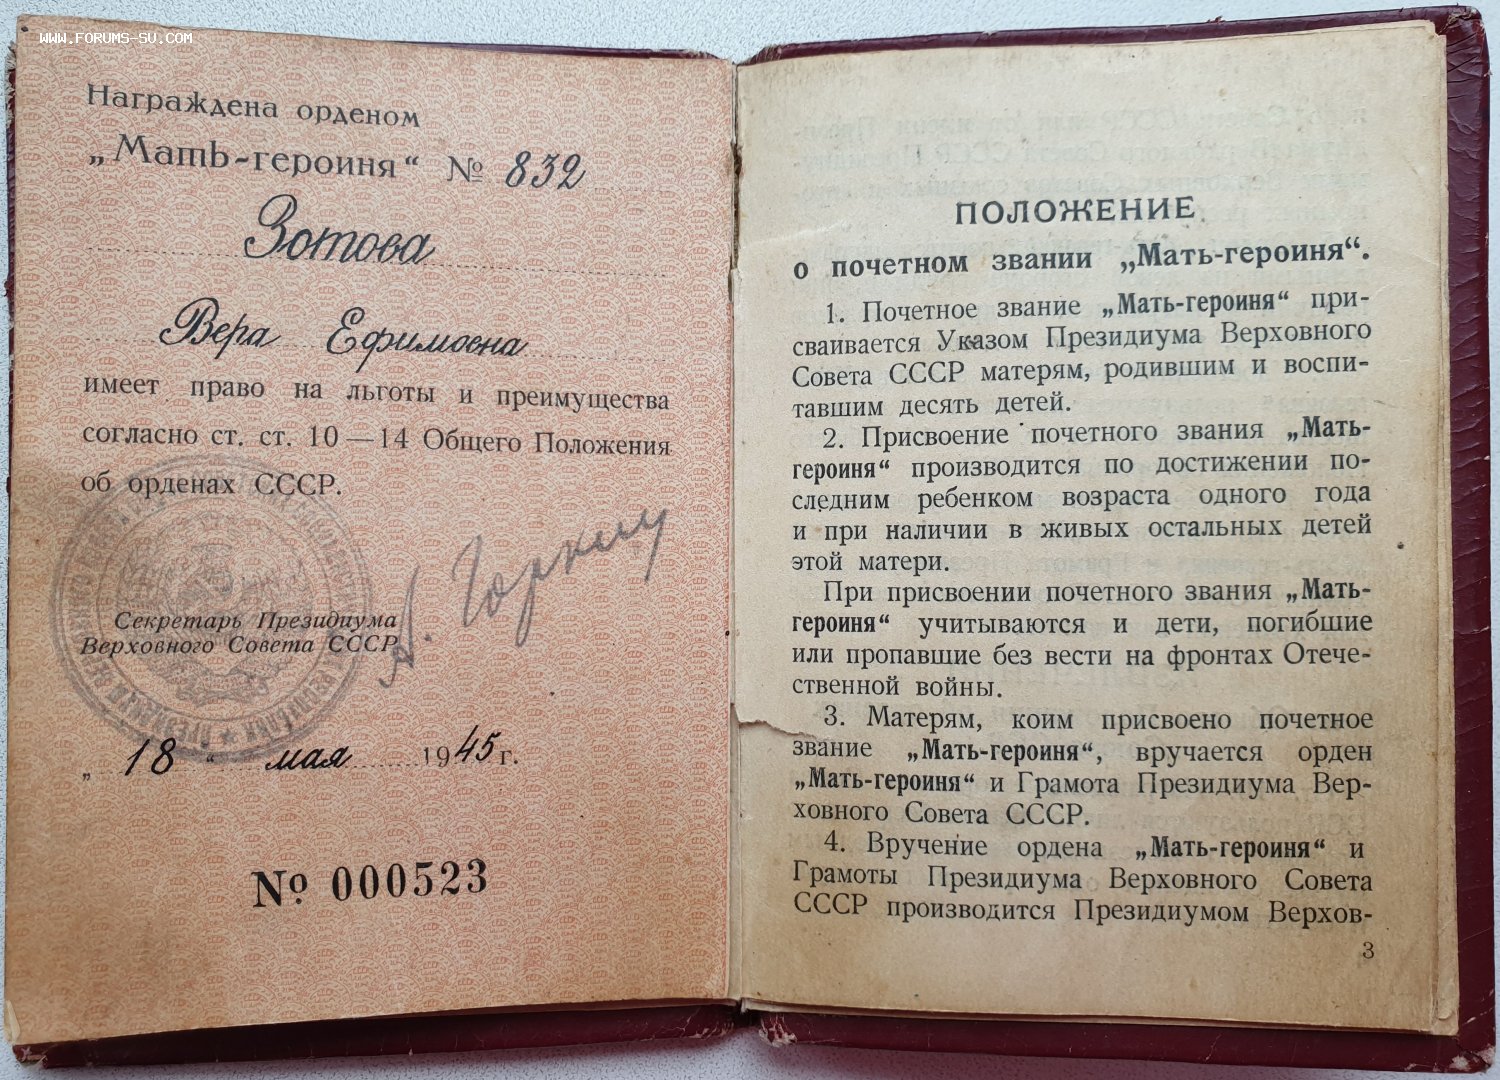 WWW.FORUMS-SU.COM
Награждена орденом
„Мать-героиня“ № 832
Зотова
Вера Ефимовна
имеет право на льготы и преимущества
согласно ст. ст. 10—14 Общего Положения
об орденах СССР.
Секретарь Президиума
Верховного Совета СССР
А. Горкин
„ 18 “ мая 1945 г.
№ 000523
ПОЛОЖЕНИЕ
о почетном звании „Мать-героиня“.
1. Почетное звание „Мать-героиня“ при-
сваивается Указом Президиума Верховного
Совета СССР матерям, родившим и воспи-
тавшим десять детей.
2. Присвоение почетного звания „Мать-
героиня“ производится по достижении по-
следним ребенком возраста одного года
и при наличии в живых остальных детей
этой матери.
При присвоении почетного звания „Мать-
героиня“ учитываются и дети, погибшие
или пропавшие без вести на фронтах Отече-
ственной войны.
3. Матерям, коим присвоено почетное
звание „Мать-героиня“, вручается орден
„Мать-героиня“ и Грамота Президиума Вер-
ховного Совета СССР.
4. Вручение ордена „Мать-героиня“ и
Грамоты Президиума Верховного Совета
СССР производится Президиумом Верхов-
3